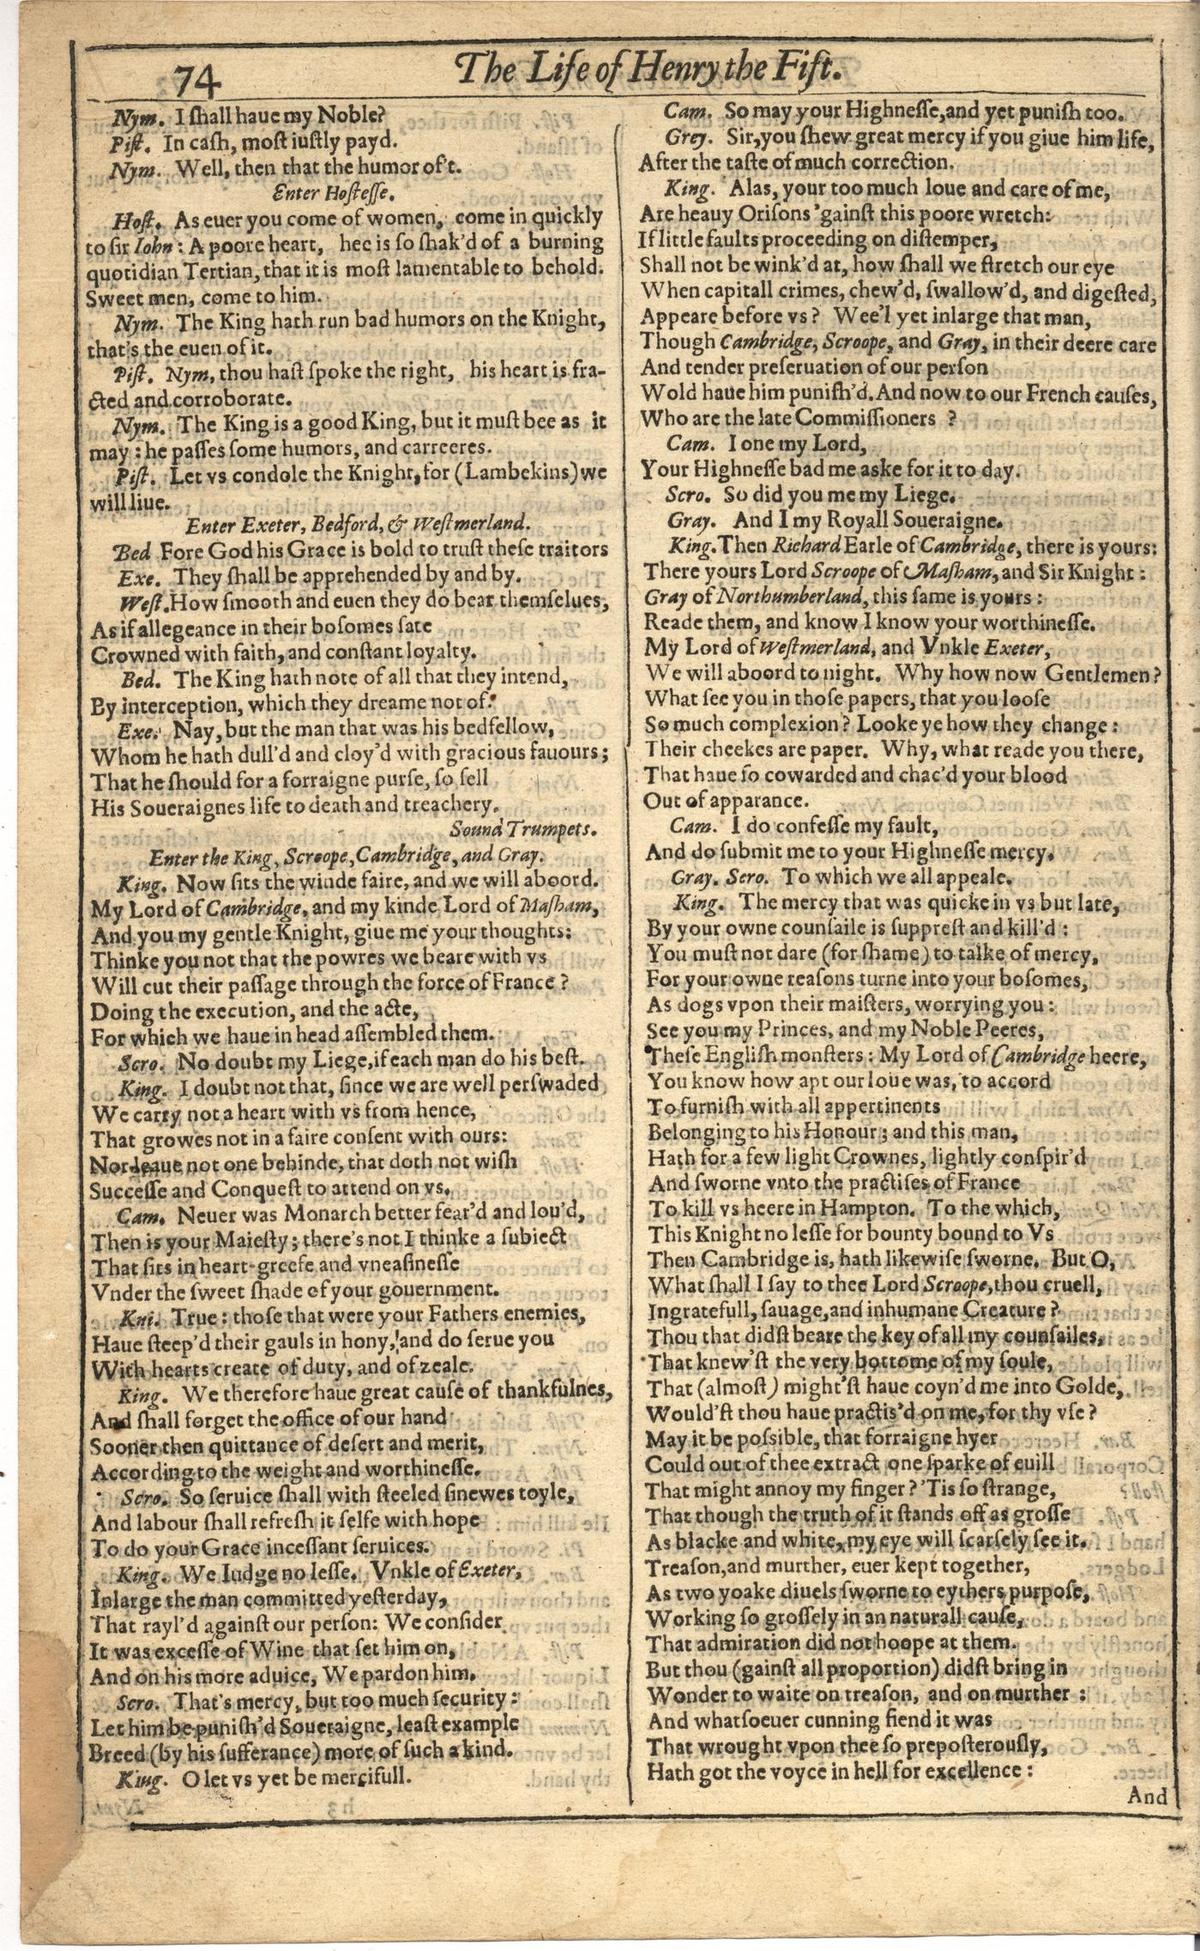 74
The Life of Henry the Fift.
Nym. I ſhall haue my Noble?
Piſt. In caſh, moſt iuſtly payd.
Nym. Well, then that the humor of't.
Enter Hoſteſſe.
Hoſt. As euer you come of women, come in quickly
to ſir Iohn: A poore heart, hee is ſo ſhak'd of a burning
quotidian Tertian, that it is moſt lamentable to behold.
Sweet men, come to him.
Nym. The King hath run bad humors on the Knight,
that's the euen of it.
Piſt. Nym, thou haſt ſpoke the right, his heart is fra-
cted and corroborate.
Nym. The King is a good King, but it muſt bee as it
may: he paſſes ſome humors, and carreeres.
Piſt. Let vs condole the Knight, for (Lambekins) we
will liue.
Enter Exeter, Bedford, & Weſtmerland.
Bed Fore God his Grace is bold to truſt theſe traitors
Exe. They ſhall be apprehended by and by.
Weſt. How ſmooth and euen they do bear themſelues,
As if allegeance in their boſomes ſate
Crowned with faith, and conſtant loyalty.
Bed. The King hath note of all that they intend,
By interception, which they dreame not of.
Exe. Nay, but the man that was his bedfellow,
Whom he hath dull'd and cloy'd with gracious fauours;
That he ſhould for a forraigne purſe, ſo ſell
His Soueraignes life to death and treachery.
Sound Trumpets.
Enter the King, Scroope, Cambridge, and Gray.
King. Now ſits the winde faire, and we will aboord.
My Lord of Cambridge, and my kinde Lord of Maſham,
And you my gentle Knight, giue me your thoughts:
Thinke you not that the powres we beare with vs
Will cut their paſſage through the force of France?
Doing the execution, and the acte,
For which we haue in head aſſembled them.
Scro. No doubt my Liege, if each man do his beſt.
King. I doubt not that, ſince we are well perſwaded
We carry not a heart with vs from hence,
That growes not in a faire conſent with ours:
Nor leaue not one behinde, that doth not wiſh
Succeſſe and Conqueſt to attend on vs.
Cam. Neuer was Monarch better fear'd and lou'd,
Then is your Maieſty; there's not I thinke a ſubiect
That ſits in heart-greefe and vneaſineſſe
Vnder the ſweet ſhade of your gouernment.
Kni. True: thoſe that were your Fathers enemies,
Haue ſteep'd their gauls in hony, and do ſerue you
With hearts create of duty, and of zeale.
King. We therefore haue great cauſe of thankfulnes,
And ſhall forget the office of our hand
Sooner then quittance of deſert and merit,
According to the weight and worthineſſe.
Scro. So ſeruice ſhall with ſteeled ſinewes toyle,
And labour ſhall refreſh it ſelfe with hope
To do your Grace inceſſant ſeruices.
King. We Iudge no leſſe. Vnkle of Exeter,
Inlarge the man committed yeſterday,
That rayl'd againſt our perſon: We conſider
It was exceſſe of Wine that ſet him on,
And on his more aduice, We pardon him.
Scro. That's mercy, but too much ſecurity:
Let him be puniſh'd Soueraigne, leaſt example
Breed (by his ſufferance) more of ſuch a kind.
King. O let vs yet be mercifull.
Cam. So may your Highneſſe, and yet puniſh too.
Grey. Sir, you ſhew great mercy if you giue him life,
After the taſte of much correction.
King. Alas, your too much loue and care of me,
Are heauy Oriſons 'gainſt this poore wretch:
If little faults proceeding on diſtemper,
Shall not be wink'd at, how ſhall we ſtretch our eye
When capitall crimes, chew'd, ſwallow'd, and digeſted,
Appeare before vs? Wee'l yet inlarge that man,
Though Cambridge, Scroope, and Gray, in their deere care
And tender preſeruation of our perſon
Wold haue him puniſh'd. And now to our French cauſes,
Who are the late Commiſſioners?
Cam. I one my Lord,
Your Highneſſe bad me aske for it to day.
Scro. So did you me my Liege.
Gray. And I my Royall Soueraigne.
King. Then Richard Earle of Cambridge, there is yours:
There yours Lord Scroope of Maſham, and Sir Knight:
Gray of Northumberland, this ſame is yours:
Reade them, and know I know your worthineſſe.
My Lord of Weſtmerland, and Vnkle Exeter,
We will aboord to night. Why how now Gentlemen?
What ſee you in thoſe papers, that you looſe
So much complexion? Looke ye how they change:
Their cheekes are paper. Why, what reade you there,
That haue ſo cowarded and chac'd your blood
Out of apparance.
Cam. I do confeſſe my fault,
And do ſubmit me to your Highneſſe mercy.
Gray. Scro. To which we all appeale.
King. The mercy that was quicke in vs but late,
By your owne counſaile is ſuppreſt and kill'd:
You muſt not dare (for ſhame) to talke of mercy,
For your owne reaſons turne into your boſomes,
As dogs vpon their maiſters, worrying you:
See you my Princes, and my Noble Peeres,
Theſe Engliſh monſters: My Lord of Cambridge heere,
You know how apt our loue was, to accord
To furniſh with all appertinents
Belonging to his Honour; and this man,
Hath for a few light Crownes, lightly conſpir'd
And ſworne vnto the practiſes of France
To kill vs heere in Hampton. To the which,
This Knight no leſſe for bounty bound to Vs
Then Cambridge is, hath likewiſe ſworne. But O,
What ſhall I ſay to thee Lord Scroope, thou cruell,
Ingratefull, ſauage, and inhumane Creature?
Thou that didſt beare the key of all my counſailes,
That knew'ſt the very bottome of my ſoule,
That (almoſt) might'ſt haue coyn'd me into Golde,
Would'ſt thou haue practis'd on me, for thy vſe?
May it be poſſible, that forraigne hyer
Could out of thee extract one ſparke of euill
That might annoy my finger? 'Tis ſo ſtrange,
That though the truth of it ſtands off as groſſe
As blacke and white, my eye will ſcarſely ſee it.
Treaſon, and murther, euer kept together,
As two yoake diuels ſworne to eythers purpoſe,
Working ſo groſſely in an naturall cauſe,
That admiration did not hoope at them.
But thou (gainſt all proportion) didſt bring in
Wonder to waite on treaſon, and on murther:
And whatſoeuer cunning fiend it was
That wrought vpon thee ſo prepoſterouſly,
Hath got the voyce in hell for excellence:
And